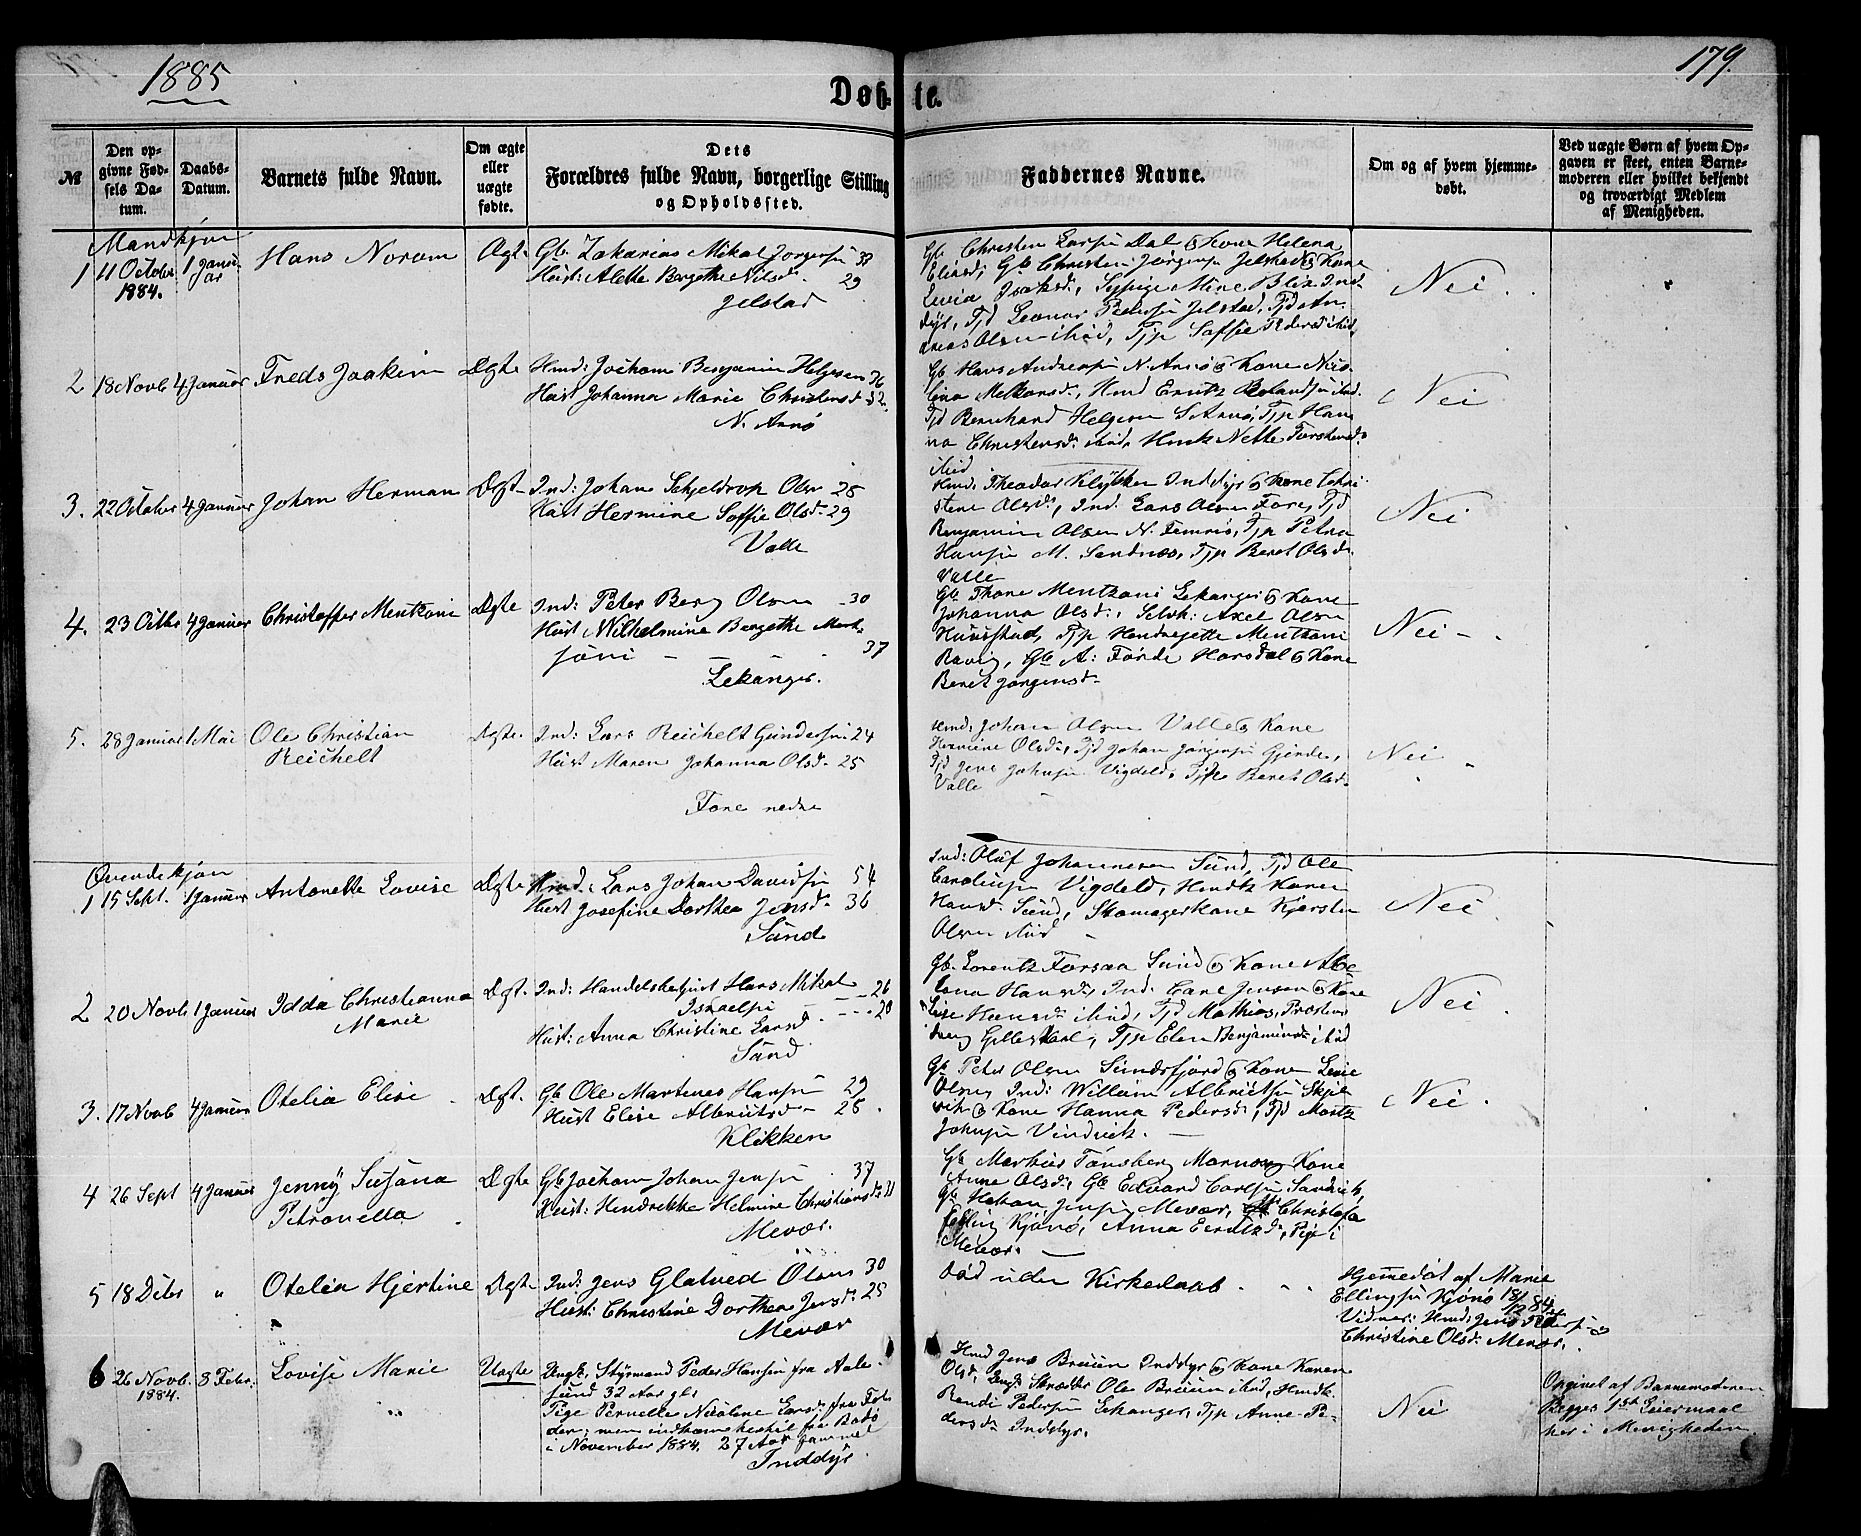 1885
179.
Døbte.
№
Den opgivne Fødsels Datum.
Daabs-Datum.
Barnets fulde Navn.
Om ægte eller uægte fødte.
Dets Forældres fulde Navn, borgerlige Stilling og Opholdssted.
Faddernes Navne.
Om og af hvem hjemmedøbt.
Ved uægte Børn af hvem Opgaven er skeet, enten Barnemoderen eller hvilket bekjendt og troværdigt Medlem af Menigheden.
Mandkjøn
1 11 October 1884. 1 Januar
Hans Norom
Ægt.
Gb. Zakarias Mikal Jørgensen 38
Hust: Alette Bergethe Nilsd. 29
Jelstad
Gb. Christen Larsen Dal og Kone Helena
Eliasd; Gb Christen Jørgensen Jelstad og Kone
Isaksd,
dyr, Tjd Leonar Pedersen Jelstad, Tjd An-
dreas Olsen ibid, Tjp Soffie Pedersd ibid
Nei.
2 18 Novb 4 Januar
Freds Joakim
Ægte
Hmd: Jochom Benjamin Helgesen 36
Hust Johanna Marie Christensd 32
N. Arnø
Gb. Hans Andreasen N. Arnø og Kone
Tjd Bernhard Helgesen S. Arnø, Tjp Han
na Christensd ibid,
ibid
Nei
3. 22 October 4 Januar
Johan Herman
Ægt
Ind: Johan Schjeldrop Olsn 25
Hust Hermine Soffie Olsd. 29
Valle
Theodor Klykken Inddyr og Kone
stene Olsd, Ind. Lars Olsen Fore, Tjd
Benjamin Olsen N. Femris, Tjp Petra
Hansen M. Sandnæs, Tjp Beret Olsd.
Valle
Nei
4. 23 Octbr 4 Januar
Christoffer Mentzoni
Ægte
Ind: Peter Berg Olsen 30
Hust Wilhelmine Bergethe Ment-
zoni 37
Lekanger.
Gb. Thone Mentzoni Lekanger og Kone
Johanna Olsd, Selvk: Axel Olsen
Hunstad, Tjp Hendregette Mentzoni
Gb A: Førde Horsdal og Kone
Beret Jørgensd.
Nei
5. 28 Januar 1 Mai
Ole Christian
Reichelt
Ægte
Ind: Lars Reichelt Gundersen 24
Hust Maren Johanna Olsd. 25
Fore nedre
Hmd: Johan Olsen Valle og Kone
Hermine Olsd., Tjd Johan Jørgensen Gjerde,
Tjd Jens Johnsen Vigdeld, Tjp Beret Olsd.
Valle
Nei
Qvindekjøn
1 15 Sept. 1 Januar
Antonette Lovise
Ægte
Hmd: Lars Johan Davidsen 54
Hust Josefine Dorthea Jensd. 36
Sund
Ind: Oluf Johannesen Sund, Tjd Ole
Carolinsen Vigdeld, Hmdk Karen
Hansd. Sund, Skomagerkone Kjersten
Olsen ibid
Nei
2 20 Novb 1 Januar
Idda Christianna
Marie
Ægt.
Ind: Handelsbetjent Hans Mikal
Israelsen 26
Hust: Anna Christine Larsd. 20
Sund
Gb. Lorentz Forsaa Sund og Kone Abe
lona Hansd, Ind: Carl Jensen og Kone
Lise Hansd ibid, Tjd Mathias
Gilleskaal, Tjp Elen Benjaminsd ibid
Nei.
3. 17 Novb 4 Januar
Otelia Elise
Ægt.
Gb Ole Martines Hansen 29
Hust Elise Albrictsd 25.
Klikken
Gb Peter Olsen Sundsfjord og Kone
Olsen, Ind: William Albrictsen Skjel
vik og Kone Hanna Pedersd, Tjd
Johnsen Vindvik.
Nei.
4 26 Sept 4 Januar
Jenny Susana
Petronella
Ægte
Gb Jochom Johan Jensen 37
Hust: Hendrekke Helmine Christiansd. 31
Mevær.
Gb Markus Tønsberg Marnæs og Kone
Anne Olsd; Gb Edvard Carlsen Sandvik,
Gb Hakan Jensen Mevær, Christofa
Elling Kjønø, Anna Eerntzd, Pige i
Mevær.
5 18 Decbr "
Otelia Hjertine
Ægte
Ind: Jens Glatved Olsen 30
Hust: Christine Dorthea Jensd. 25
Mevær
Død uden Kirkedaab.
Hjemmedøbt af Marie
Ellingsen Kjønø 18/12 84.
Vidner: Hmd: Jens Pedersen og
Christine Olsd. Mevær.
6 26 Novb. 1884. 8 Febr.
Lovise Marie
Uægte
Ungk. Styrmand Peder Hansen fra Aale-
sund 32 Aar gl.
Pige Pernelle Nicoline Larsd. fra
den, men indkommen hertil fra Bodø
i November 1884. 27 Aar gammel
Inddyr
Hmd Jens Bruun Inddyr og Kone Karen
Olsd, Ungk Skrædder Ole Bruun ibid, Hmdk.
Rende Pedersen Lekanger, Tjp Anne Pe-
dersd. Inddyr.
Nei
Opgivet af Barnemoderen
Begges 1ste Leiermaal
her i Menigheden.